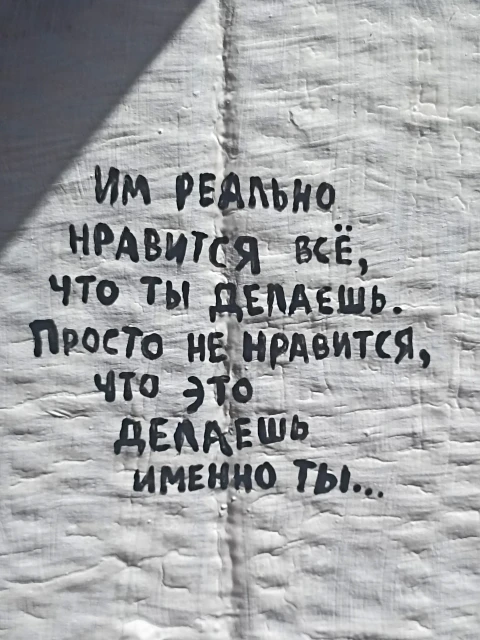 Им реально
нравится всё,
что ты делаешь.
Просто не нравится,
что это
делаешь
именно ты...